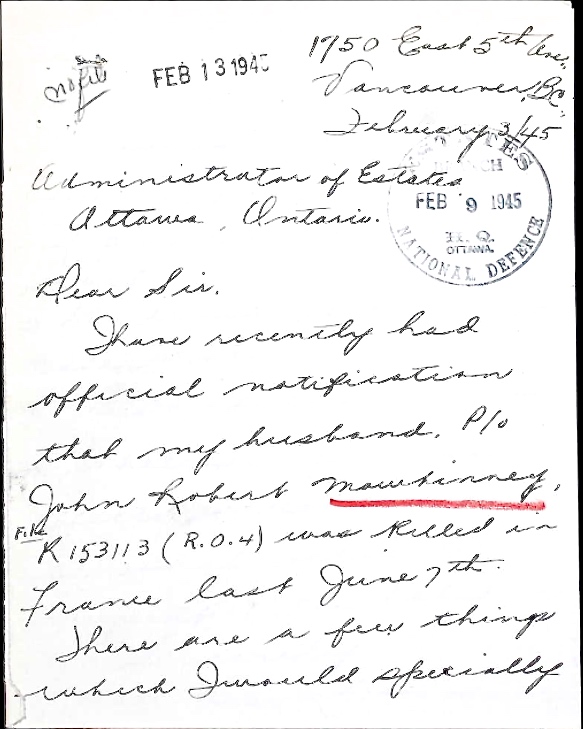 no file
FEB 13 1945
1750 East 5th Ave.,
Vancouver, B.C.
February 3/45
ESTATES
BRANCH
FEB 9 1945
H.Q.
OTTAWA.
NATIONAL DEFENCE
Administrator of Estates
Ottawa, Ontario.
Dear Sir.
I have recently had
official notification
that my husband. P/o
John Robert Mawhinney,
File
R 153113 (R.O.4) was killed in
France last June 7th.
There are a few things
which I would specially